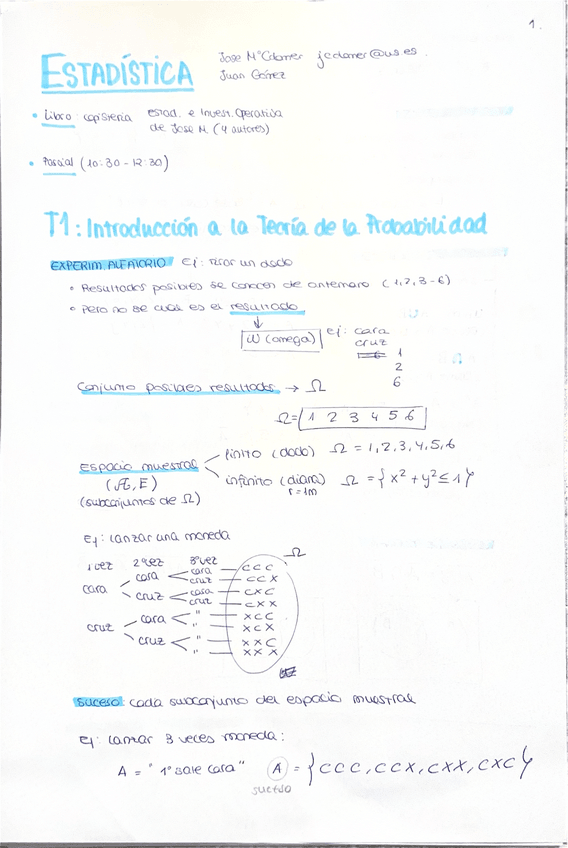 1.
ESTADÍSTICA
Jose Mª jcdoner@us.es.
Juan Gómez
• Libro: copistería estad. e Invest. Operativa
de Jose M. (4 autores)
• Parcial (10:30-12:30)
T1: Introducción a la Teoría de la Probabilidad
EXPERIM. ALEATORIO Ej: tirar un dado
• Resultados posibles se conocen de antemano (1,2,3-6)
• Pero no se cuál es el resultado
↓
W (omega) ej: cara
cruz
1
2
6
Conjunto posibles resultados → Ω
Ω = 1 2 3 4 5 6
Espacio muestral
finito (dado) Ω = 1,2,3,4,5,6
(Ω, E)
infinito (diana) Ω = {x² + y² ≤ 1}
r = 1m
(subconjuntos de Ω)
Ej: lanzar una moneda
1 vez 2ª vez 3ª vez Ω
cara cara cara CCC
cruz CCX
cruz cara CXC
cruz CXX
cruz cara " XCC
" XCX
cruz " XXC
" XXX
Suceso: cada subconjunto del espacio muestral
Ej: lanzar 3 veces moneda:
A = "1º sale cara" A = {CCC, CCX, CXX, CXC}
suceso